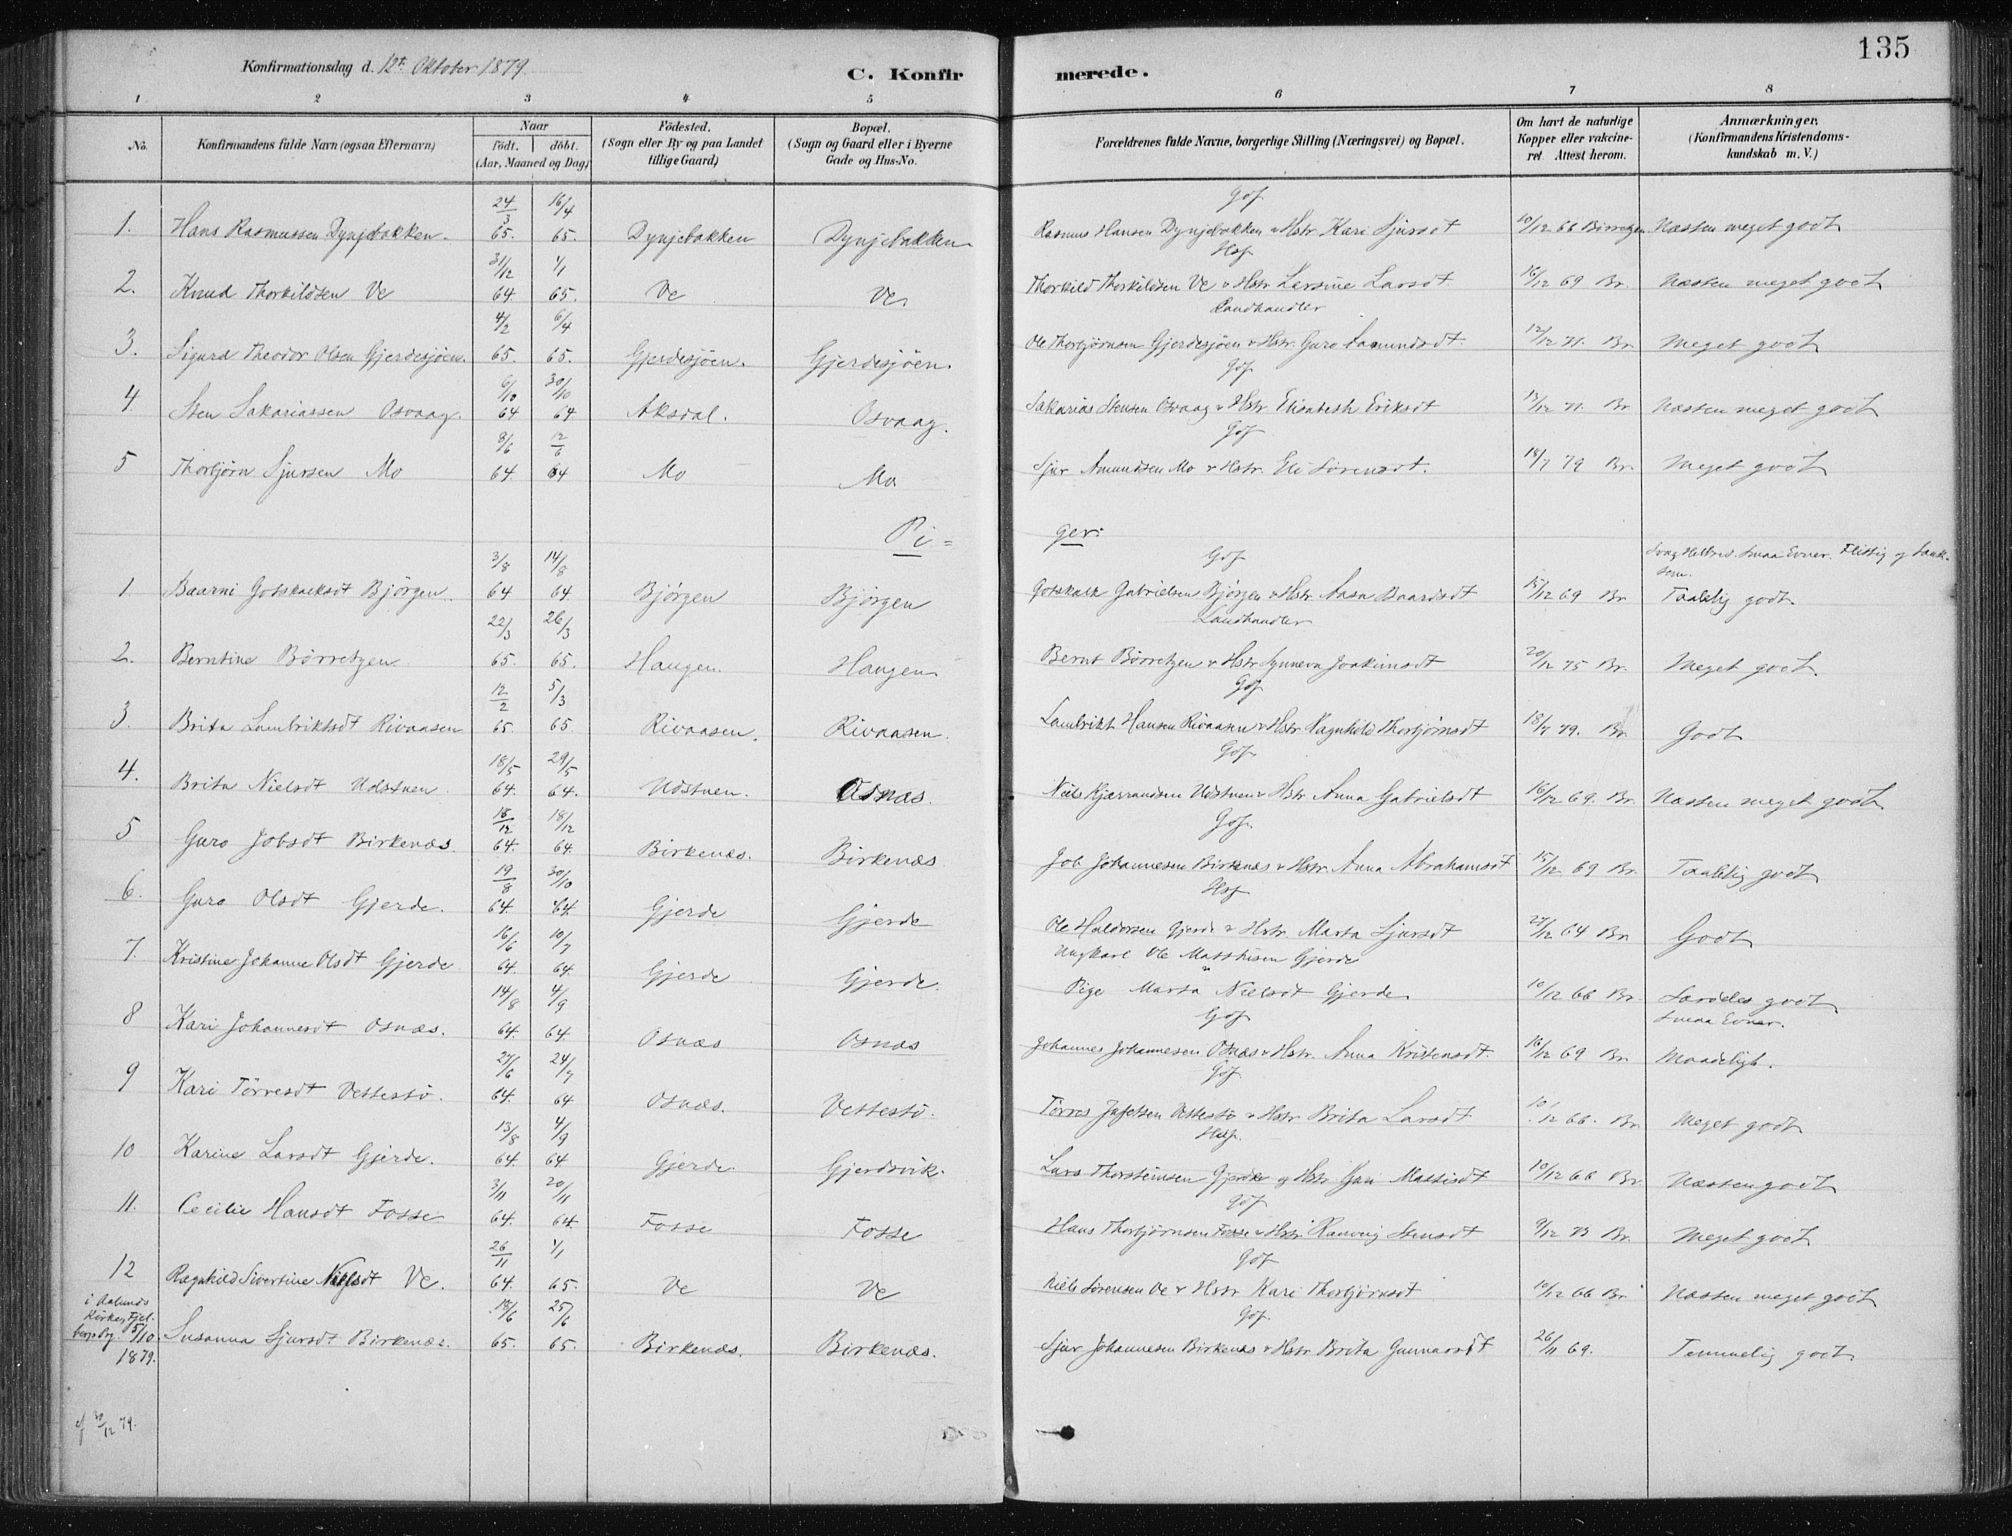 135
Konfirmationsdag d. 12te Oktober 1879.
C. Konfirmerede.
1 2 3 4 5 6 7 8
No. Konfirmandens fulde Navn (ogsaa Efternavn) Naar födt. döbt. (Aar, Maaned og Dag) Födested. (Sogn eller By og paa Landet tillige Gaard) Bopæl. (Sogn og Gaard eller i Byerne Gade og Hus-No. Forældrenes fulde Navne, borgerlige Stilling (Næringsvei) og Bopæl. Om havt de naturlige Kopper eller vakcineret Attest herom. Anmærkninger. (Konfirmandens Kristendomskundskab m. V.)
24/3 16/4 Gbf
1. Hans Rasmussen Dynjebakken. 65. 65. Dynjebakken Dynjebakken Rasmus Hansen Dynjebakken & Hstr Kari Sjursdt 10/12 66 Börretzen Næsten meget godt
31/12 1/1 Hsf
2. Knud Thorkildsen Ve 64 65. Ve Ve Thorkild Thorkildsen Ve & Hstr Larsine Larsdt 16/12 69 Br. Næsten meget godt
4/2 6/4 Landhandler
3. Sigurd Theodor Olsen Gjerdesjöen. 65. 65. Gjerdesjöen. Gjerdesjöen. Ole Thorbjörnsen Gjerdesjöen & Hstr. Guro Samundsdt. 12/12 71. Br. Meget godt
6/10 30/10 Gbf
4. Sten Sakariassen Osvaag. 64 64 Aksdal. Osvaag. Sakarias Stensen Osvaag & Hstr Elisabeth Eriksdt 13/12 71. Br. Næsten meget godt
8/6 12/6 Gbf
5 Thorbjörn Sjursen Mo 64. 64 Mo Mo Sjur Amundsen Mo & Hstr. Eli Sörensdt. 18/7 79 Br. Meget godt
Piger:
3/8 14/8 Gbf Svag Helbred. Smaa Evner. Flittig og Sanksom.
1. Baarni Gotskalksdt Bjørgen. 64 64 Bjørgen Bjørgen Gotskalk Gabrielsen Bjørgen & Hstr. Aasa Baardsdt 15/12 69 Br Taalelig godt.
22/3 26/3 Landhandler
2. Berntine Börretzen 65. 65. Haugen Haugen Bernt Börretzen & Hstr Synneva Joakimsdt 20/12 75 Br. Meget godt
12/2 5/3 Gbf
3. Brita Lambriktsdt Rivaasen 65. 65 Rivaasen. Rivaasen. Lambrikt Hansen Rivaasen & Hstr Ragnhild Thorbjörnsdt 18/7 79. Br Godt
18/5 29/5 Gbf
4. Brita Nielsdt Udstuen. 64. 64. Udstuen. Osnæs. Niels Kjærrandsen Udstuen & Hstr Anna Gabrielsdt 16/12 69. Br. Næsten meget godt
16/12 18/12 Gbf.
5 Guro Jobsdt Birkenæs. 64. 64. Birkenæs. Birkenæs Job Johannesen Birkenæs & Hstr. Anna Abrahamsdt 15/12 69 Br. Taalelig godt
19/8 30/10 Hsf
6. Guro Olsdt Gjerde. 64. 64. Gjerde Gjerde Ole Haldorsen Gjerde & Hstr. Marta Sjursdt 27/12 64 Br. Godt
16/6 10/7 Ungkarl Ole Matthisen Gjerde
7. Kristine Johanne Olsdt Gjerde 64 64. Gjerde Gjerde. Pige Marta Nielsdt Gjerde 10/12 66 Br. Særdeles godt
14/8 4/9 Gbf Smaa Evner.
8 Kari Johannesdt Osnæs. 64. 64. Osnæs Osnæs Johannes Johannesen Osnæs & Hstr. Anna Kristensdt. 16/12 69 Br Maadeligt.
27/6 24/7 Gbf.
9 Kari Törresdt Vettestö. 64. 64 Osnæs. Vettestö. Törres Jafetsen Vettestö & Hstr Brita Larsdt 10/12 66. Br Meget godt
13/8 4/9 Hsf.
10 Karine Larsdt Gjerde. 64. 64 Gjerde Gjerdsvik. Lars Thorsteinsen Gjerde & Hstr Mattisdt 10/12 66 Br. Næsten godt
3/11 20/11 Gbf
11. Cecilie Hansdt Fosse 64. 64. Fosse Fosse Hans Thorbjörnsen Fosse & Hstr. Ranveig Stensdt 9/12 73 Br. Meget godt
26/11 1/1 Gbf
12 Ragnhild Sivertine Nielsdt Ve. 64. 65. Ve Ve Niels Sörensen Ve & Hstr Kari Thorbjörnsdt 10/12 66 Br Næsten meget godt
i Ølunds Kirke, Fjelbergs Pg. 5/10. 1879. 18/6 25/6 Gbf.
Susanna Sjursdt Birkenæs. 65. 65. Birkenæs. Birkenæs. Sjur Johannesen Birkenæs & Hstr Brita Gunnarsdt 26/11 69. Temmelig godt
30/12 79.